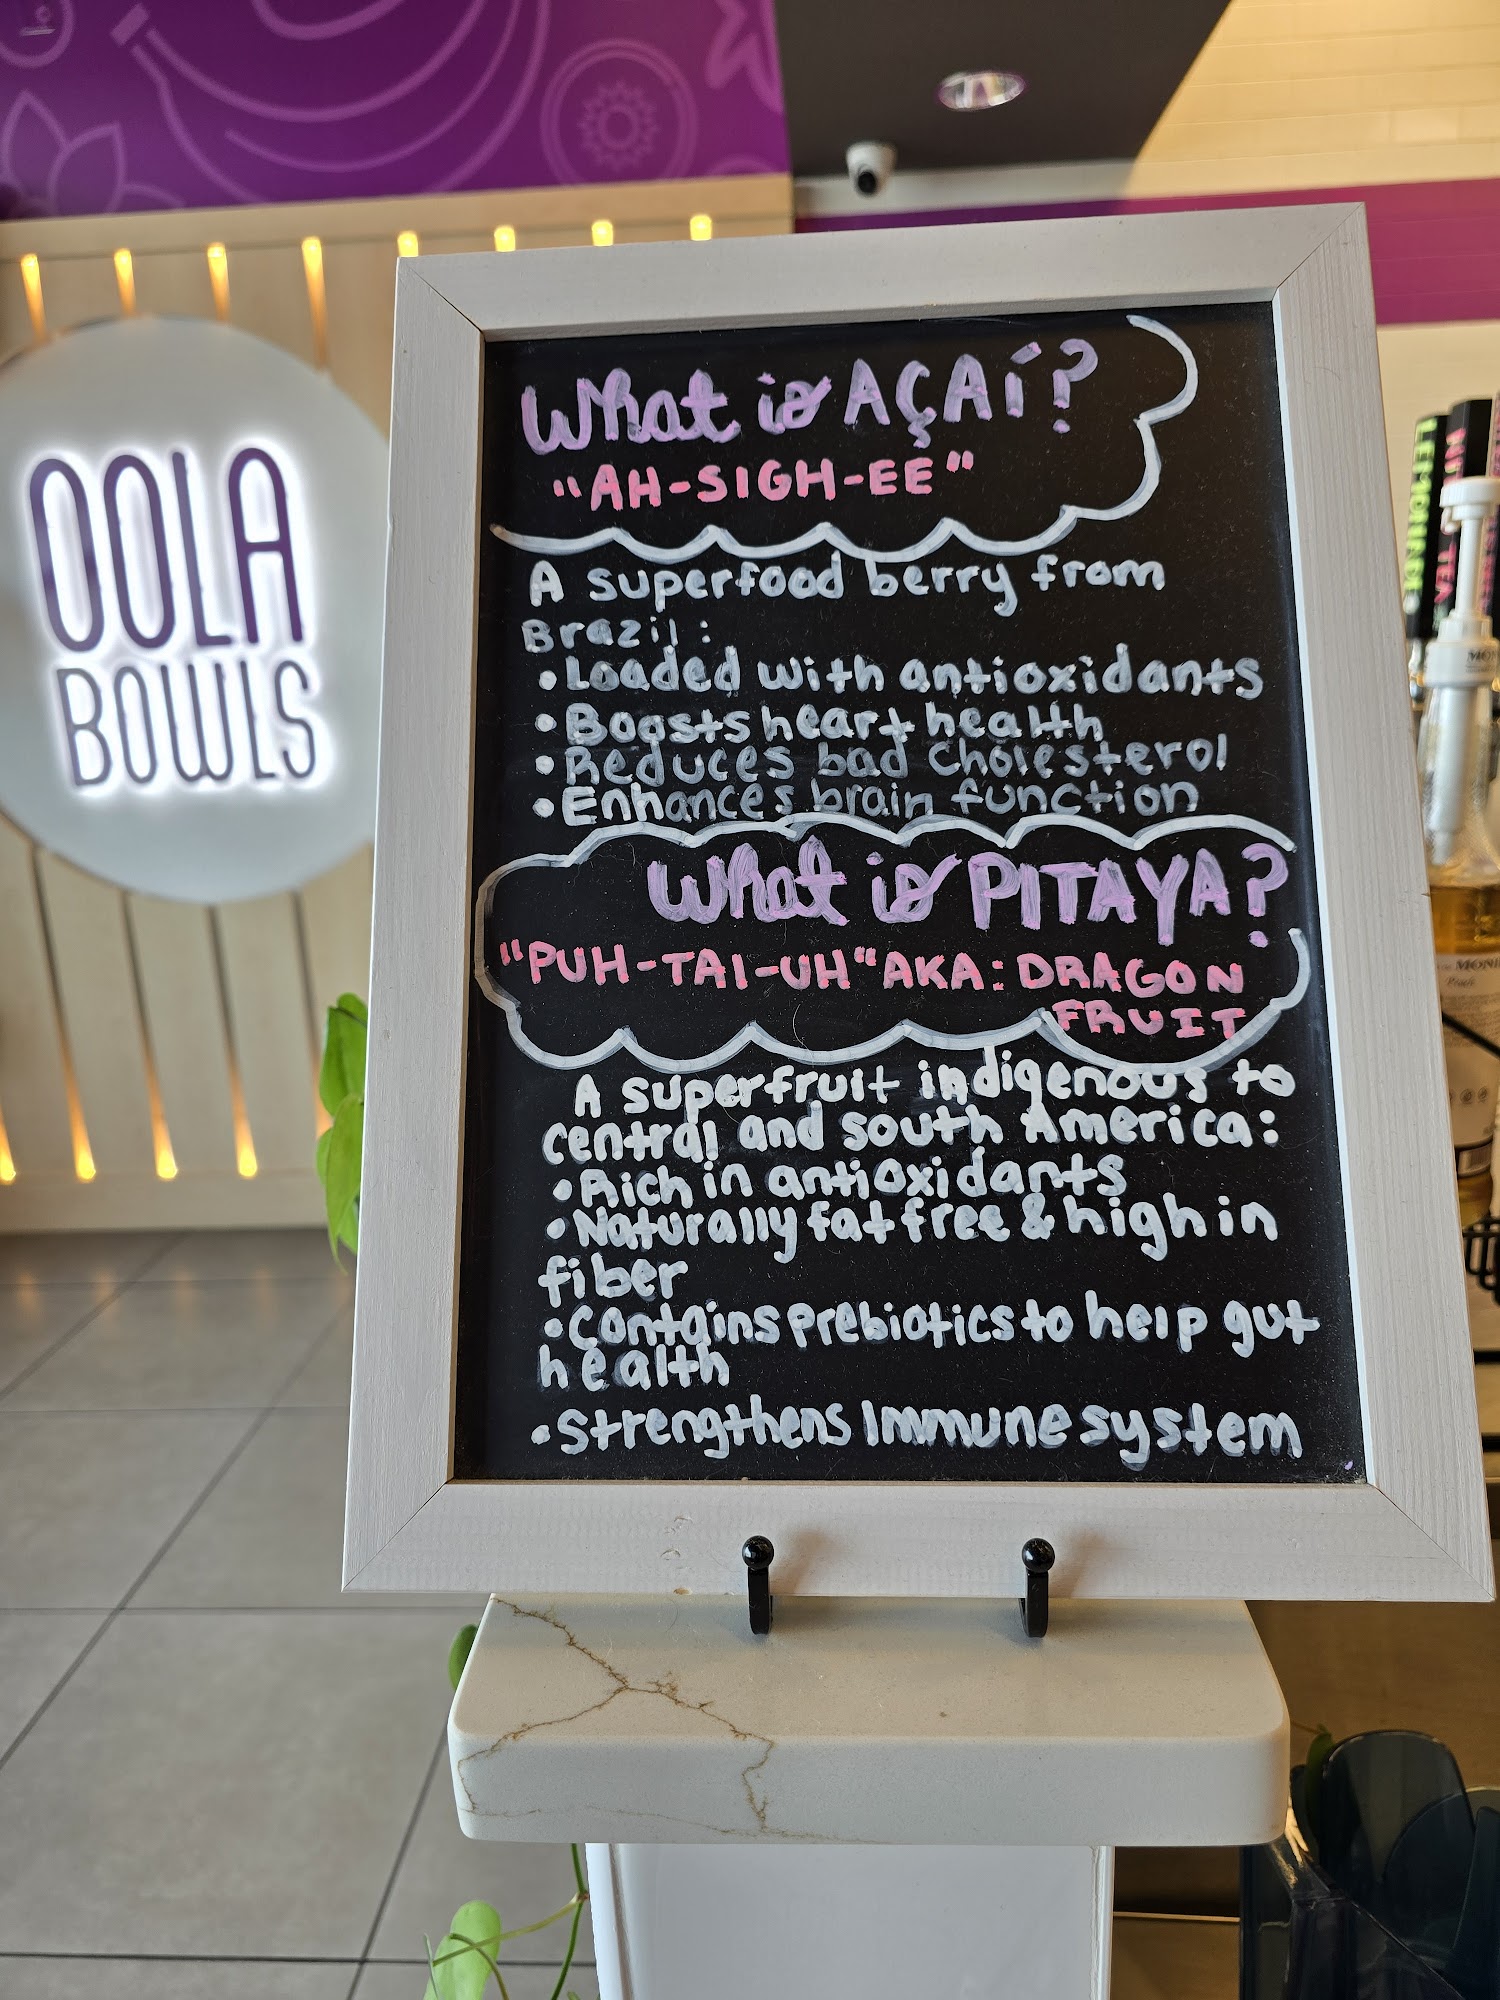 OOLA
BOWLS
What is AÇAÍ?
"AH-SIGH-EE"
A superfood berry from
Brazil:
• Loaded with antioxidants
• Boosts heart health
• Reduces bad cholesterol
• Enhances brain function
What is PITAYA?
"PUH-TAI-UH" AKA: DRAGON
FRUIT
A superfruit indigenous to
central and south America:
• Rich in antioxidants
• Naturally fat free & high in
fiber
• Contains Prebiotics to help gut
health
• Strengthens Immune system
LEMONADE
TEA